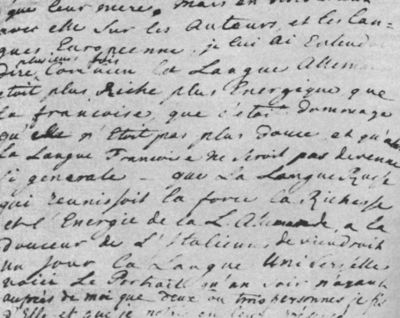 que leur mere. Mais en
avec elle sur les Auteurs, et les Lan=
gues Europeenne. je lui ai Entendu
plusieurs fois
dire Combien la Langue Allema
etoit plus Riche plus Energeque que
la francoise, que c'etoit dommage
qu'elle n'etoit pas plus douce, et qu'a
la Langue Francoise ne seroit pas devenue
si generale — que La Langue Russe
qui reunissoit la force la Richesse
et l'Energie de la L. Allemande, a la
douceur de L'Italien, deviendroit
un jour la Langue Universelle
voici Le Portrait qu'un soir n'ayant
aupres de moi que deux ou trois personnes je fis
d'Elle et que je